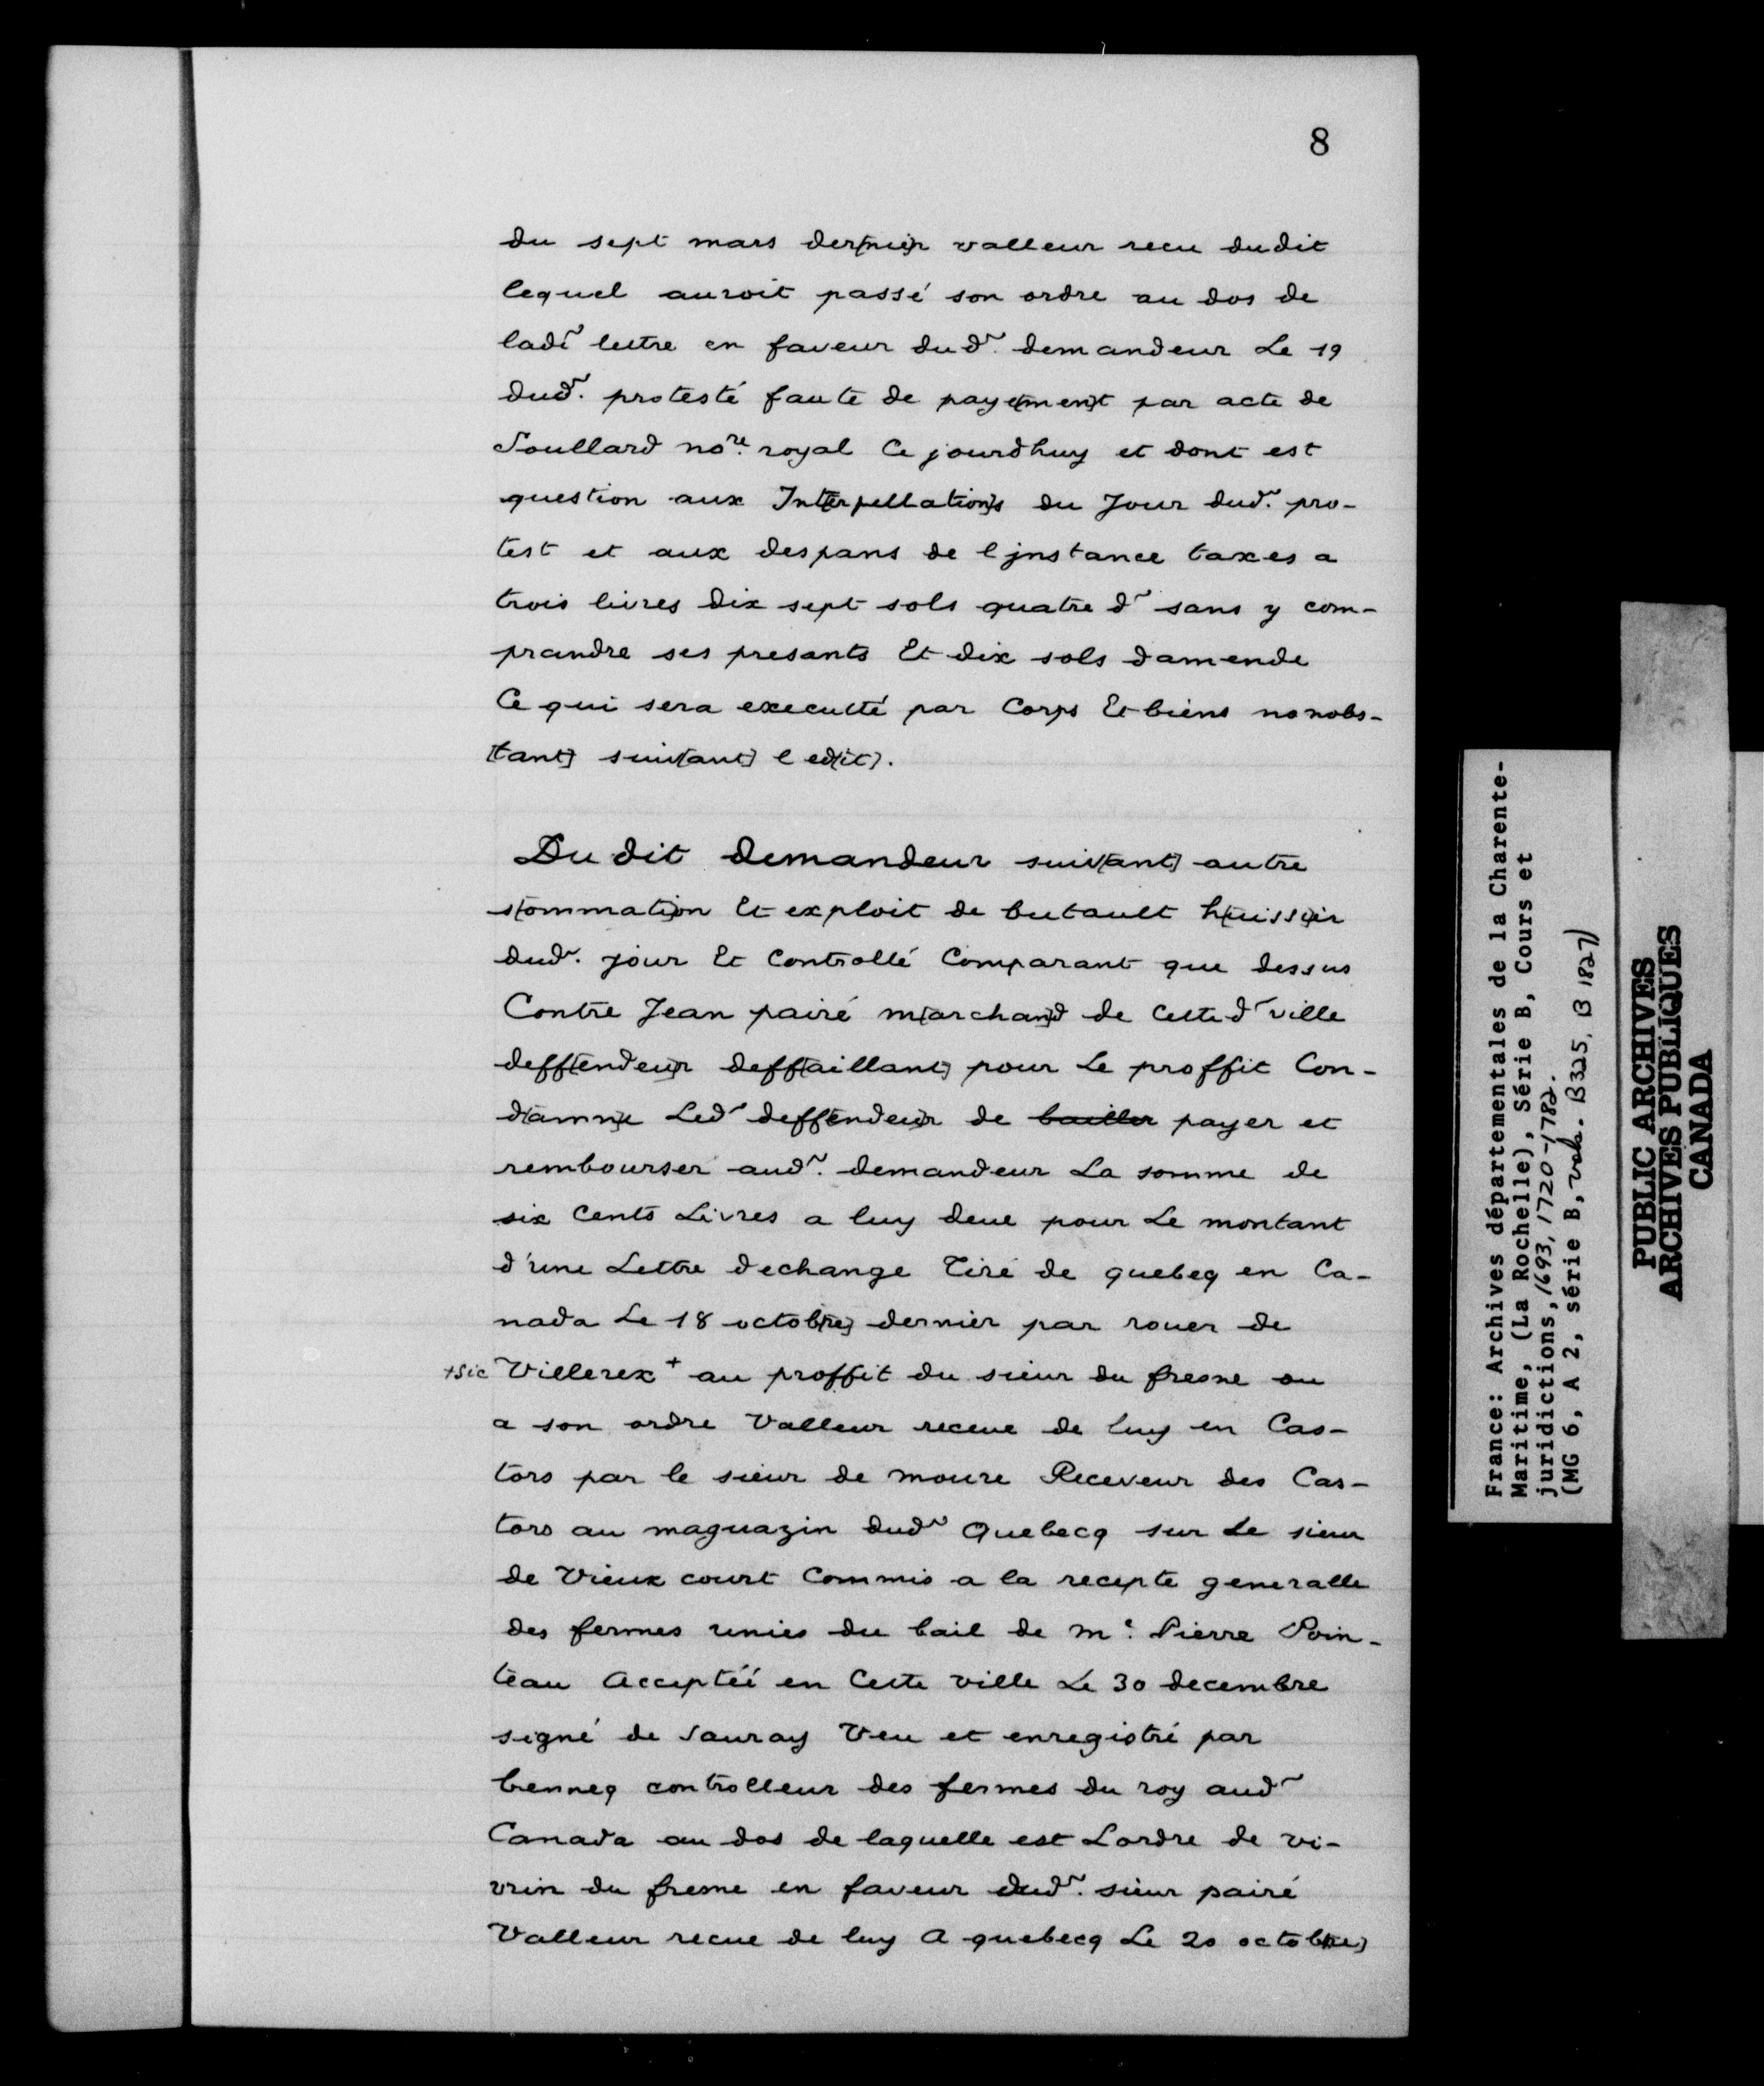 8
du sept mars der[nie]r valleur recu dudit
lequel auroit passé son ordre au dos de
ladt̃ lettre en faveur dud̃. demandeur Le 19
dud̃. protesté faute de paye[men]t par acte de
Soullard no.re royal Ce jourdhuy et dont est
question aux Int[er]pellation[s] du Jour dud̃. pro-
test et aux despans de l jnstance taxes a
trois livres dix sept sols quatre d̃ sans y com-
prandre ses presants Et dix sols damende
Ce qui sera executté par Corps Et biens nonobs-
[tant] suiv[ant] l ed[it].
Du dit demandeur suiv[ant] autre
s[ommati]on Et exploit de butault h[uiss]ier
dud̃. jour Et Controllé Comparant que dessus
Contre Jean pairé m[archan]d de Cette d̃ ville
deff[endeu]r deff[aillant] pour Le proffit Con-
d[amn]e Led̃ deff[endeu]r de bailler payer et
rembourser aud̃. demandeur La somme de
six Cents Livres a luy deue pour Le montant
d'une Lettre dechange Tiré de quebeq en Ca-
nada Le 18 octob[re] dernier par rouer de
+sic Villerex+ au proffit du sieur du fresne ou
a son ordre Valleur receue de luy en Cas-
tors par le sieur de moure Receveur des Cas-
tors au maguazin dud̃ Quebecq sur Le sieur
de Vieux court Commis a la recepte generalle
des fermes unies du bail de me. Pierre Poin-
teau Acceptéé en Cette ville Le 30 decembre
signé de Sauray Veu et enregistré par
benneq controlleur des fermes du roy aud̃
Canada au dos de laquelle est Lordre de vi-
vrin du fresne en faveur dud̃. sieur pairé
Valleur recue de luy A quebecq Le 20 octob[re]
France: Archives départementales de la Charente-
Maritime, (La Rochelle), Série B, Cours et
juridictions, 1693, 1720-1782.
(MG 6, A 2, série B, vols. B325, B 1827)
PUBLIC ARCHIVES
ARCHIVES PUBLIQUES
CANADA